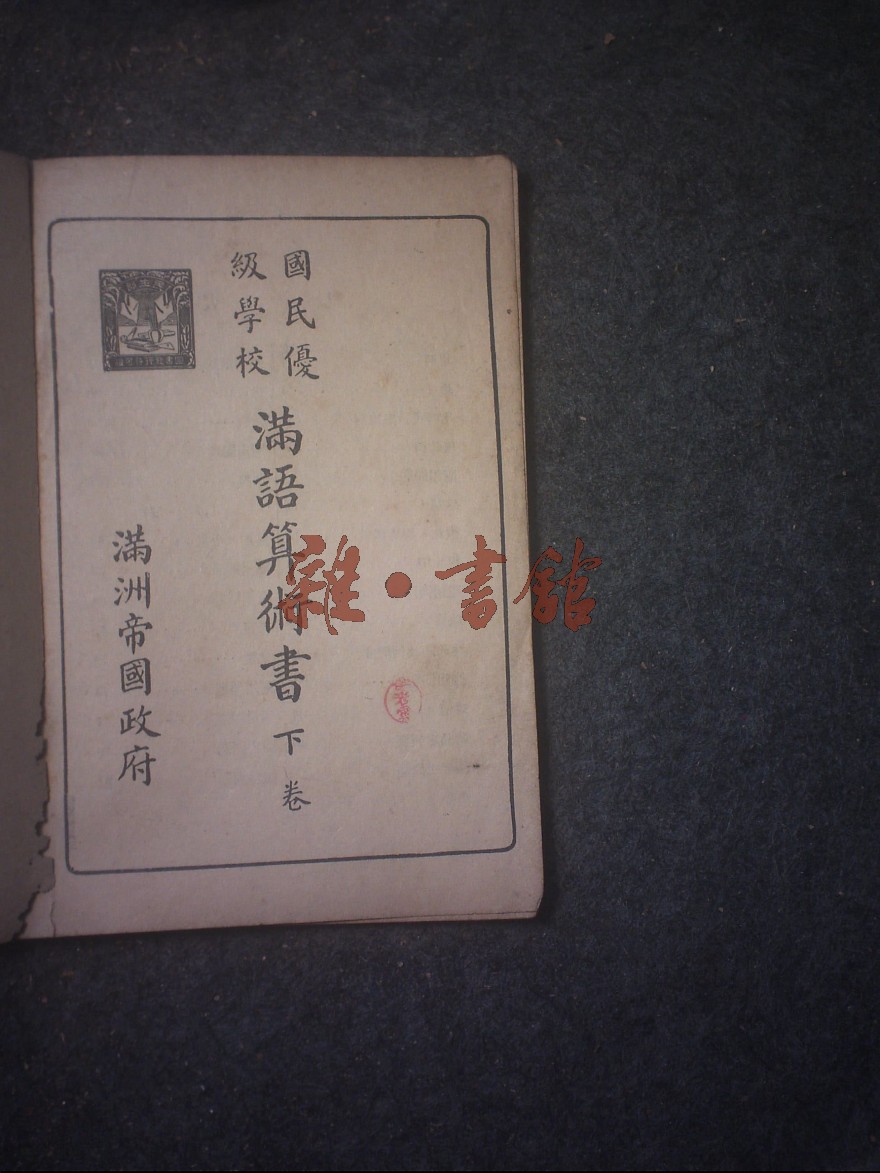 國民優
級學校
滿語算術書 下卷
滿洲帝國政府
雜·書館